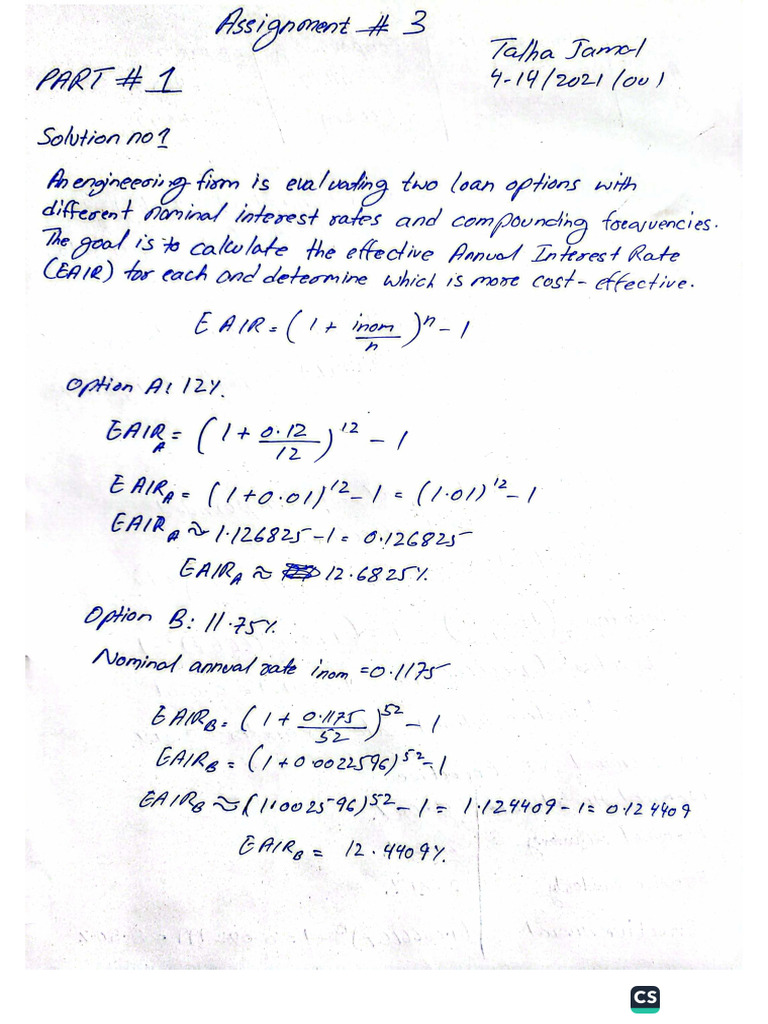 Assignment # 3
Talha Jamal
4-19/2021/001
PART # 1
Solution no 1
An engineering firm is evaluating two loan options with
different nominal interest rates and compounding frequencies.
The goal is to calculate the effective Annual Interest Rate
(EAIR) for each and determine which is more cost-effective.
EAIR = (1 + inom/n)^n - 1
Option A: 12%.
EAIR_A = (1 + 0.12/12)^12 - 1
EAIR_A = (1+0.01)^12 - 1 = (1.01)^12 - 1
EAIR_A ≈ 1.126825 - 1 = 0.126825
EAIR_A ≈ 12.6825%
Option B: 11.75%.
Nominal annual rate inom = 0.1175
EAIR_B = (1 + 0.1175/52)^52 - 1
EAIR_B = (1+0.0022596)^52 - 1
EAIR_B ≈ (1.002596)^52 - 1 = 1.124409 - 1 = 0.124409
EAIR_B = 12.4409%.
CS